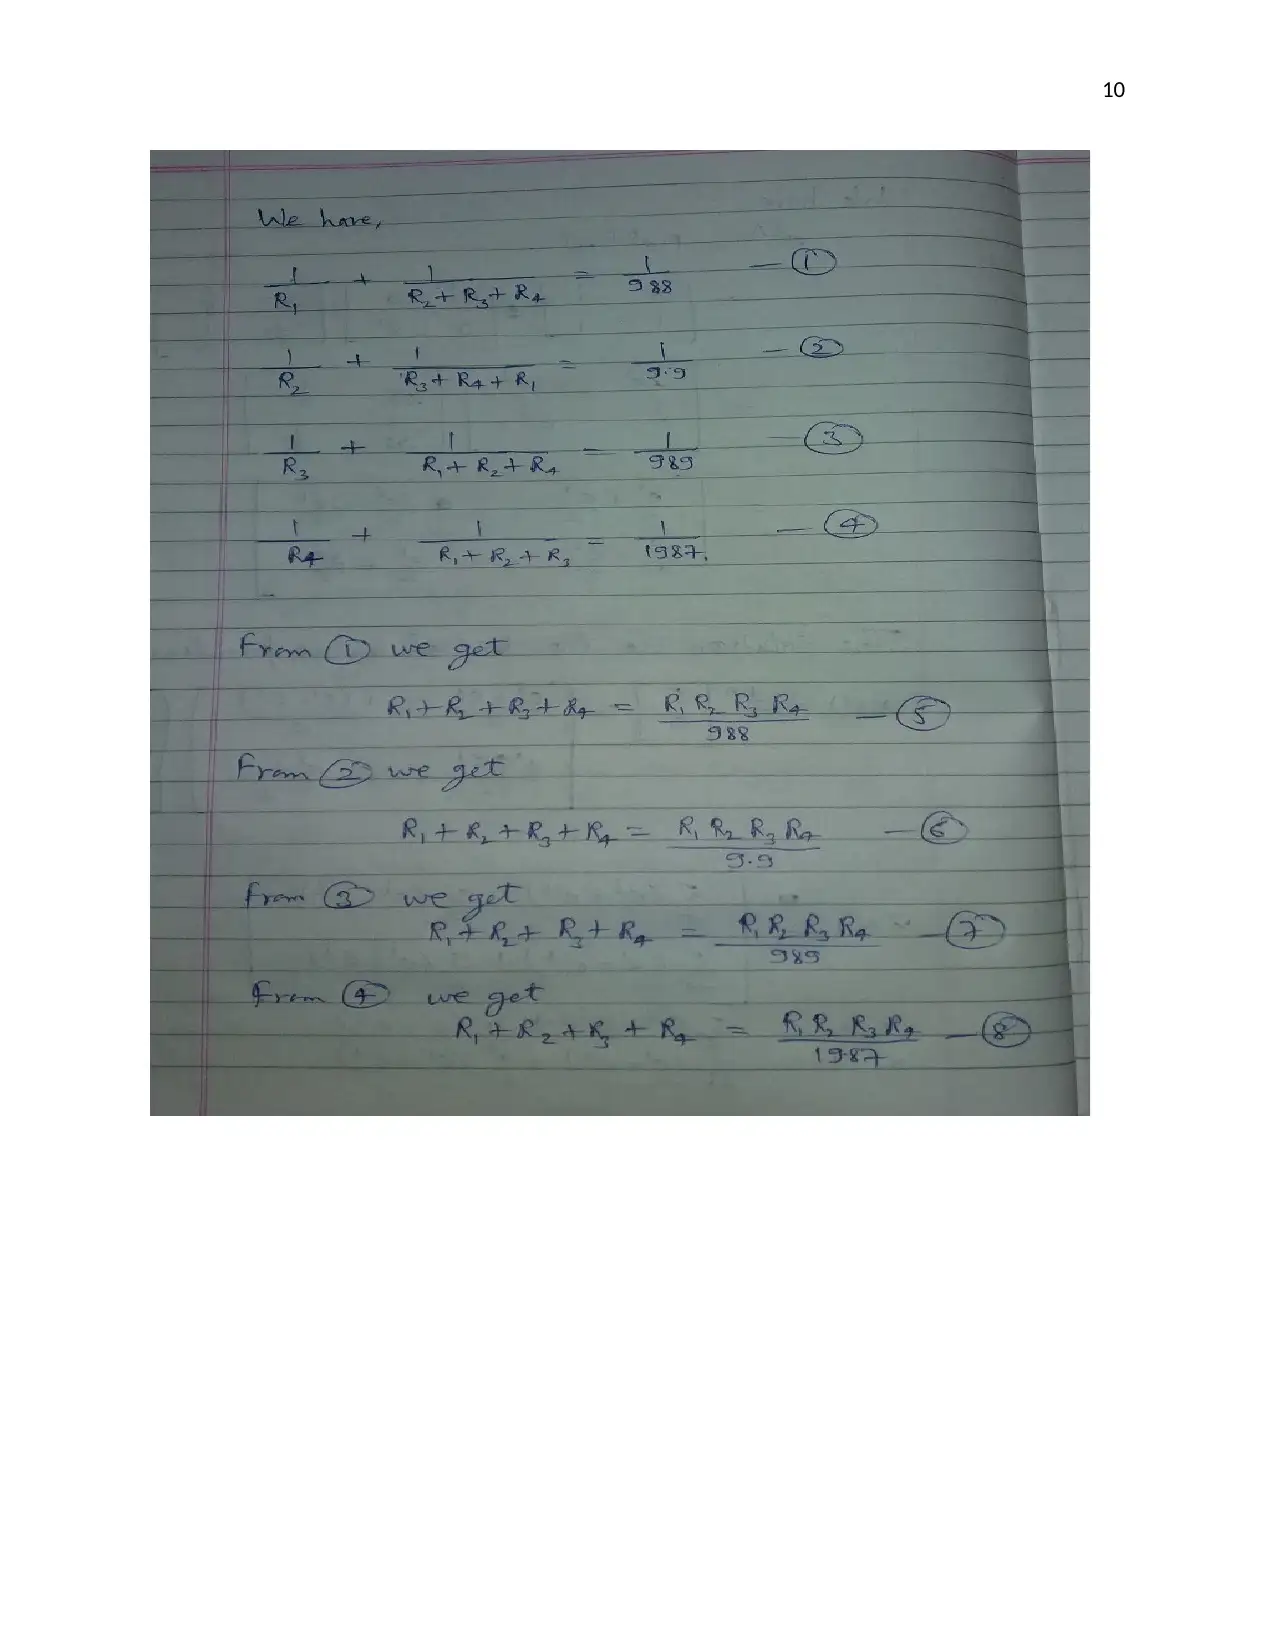 10
We have,
1/R₁ + 1/(R₂ + R₃ + R₄) = 1/988 — ①
1/R₂ + 1/(R₃ + R₄ + R₁) = 1/9.9 — ②
1/R₃ + 1/(R₁ + R₂ + R₄) = 1/989 — ③
1/R₄ + 1/(R₁ + R₂ + R₃) = 1/1987. — ④
From ① we get
R₁ + R₂ + R₃ + R₄ = R₁ R₂ R₃ R₄/988 — ⑤
From ② we get
R₁ + R₂ + R₃ + R₄ = R₁ R₂ R₃ R₄/9.9 — ⑥
From ③ we get
R₁ + R₂ + R₃ + R₄ = R₁ R₂ R₃ R₄/989 — ⑦
From ④ we get
R₁ + R₂ + R₃ + R₄ = R₁ R₂ R₃ R₄/1987 — ⑧